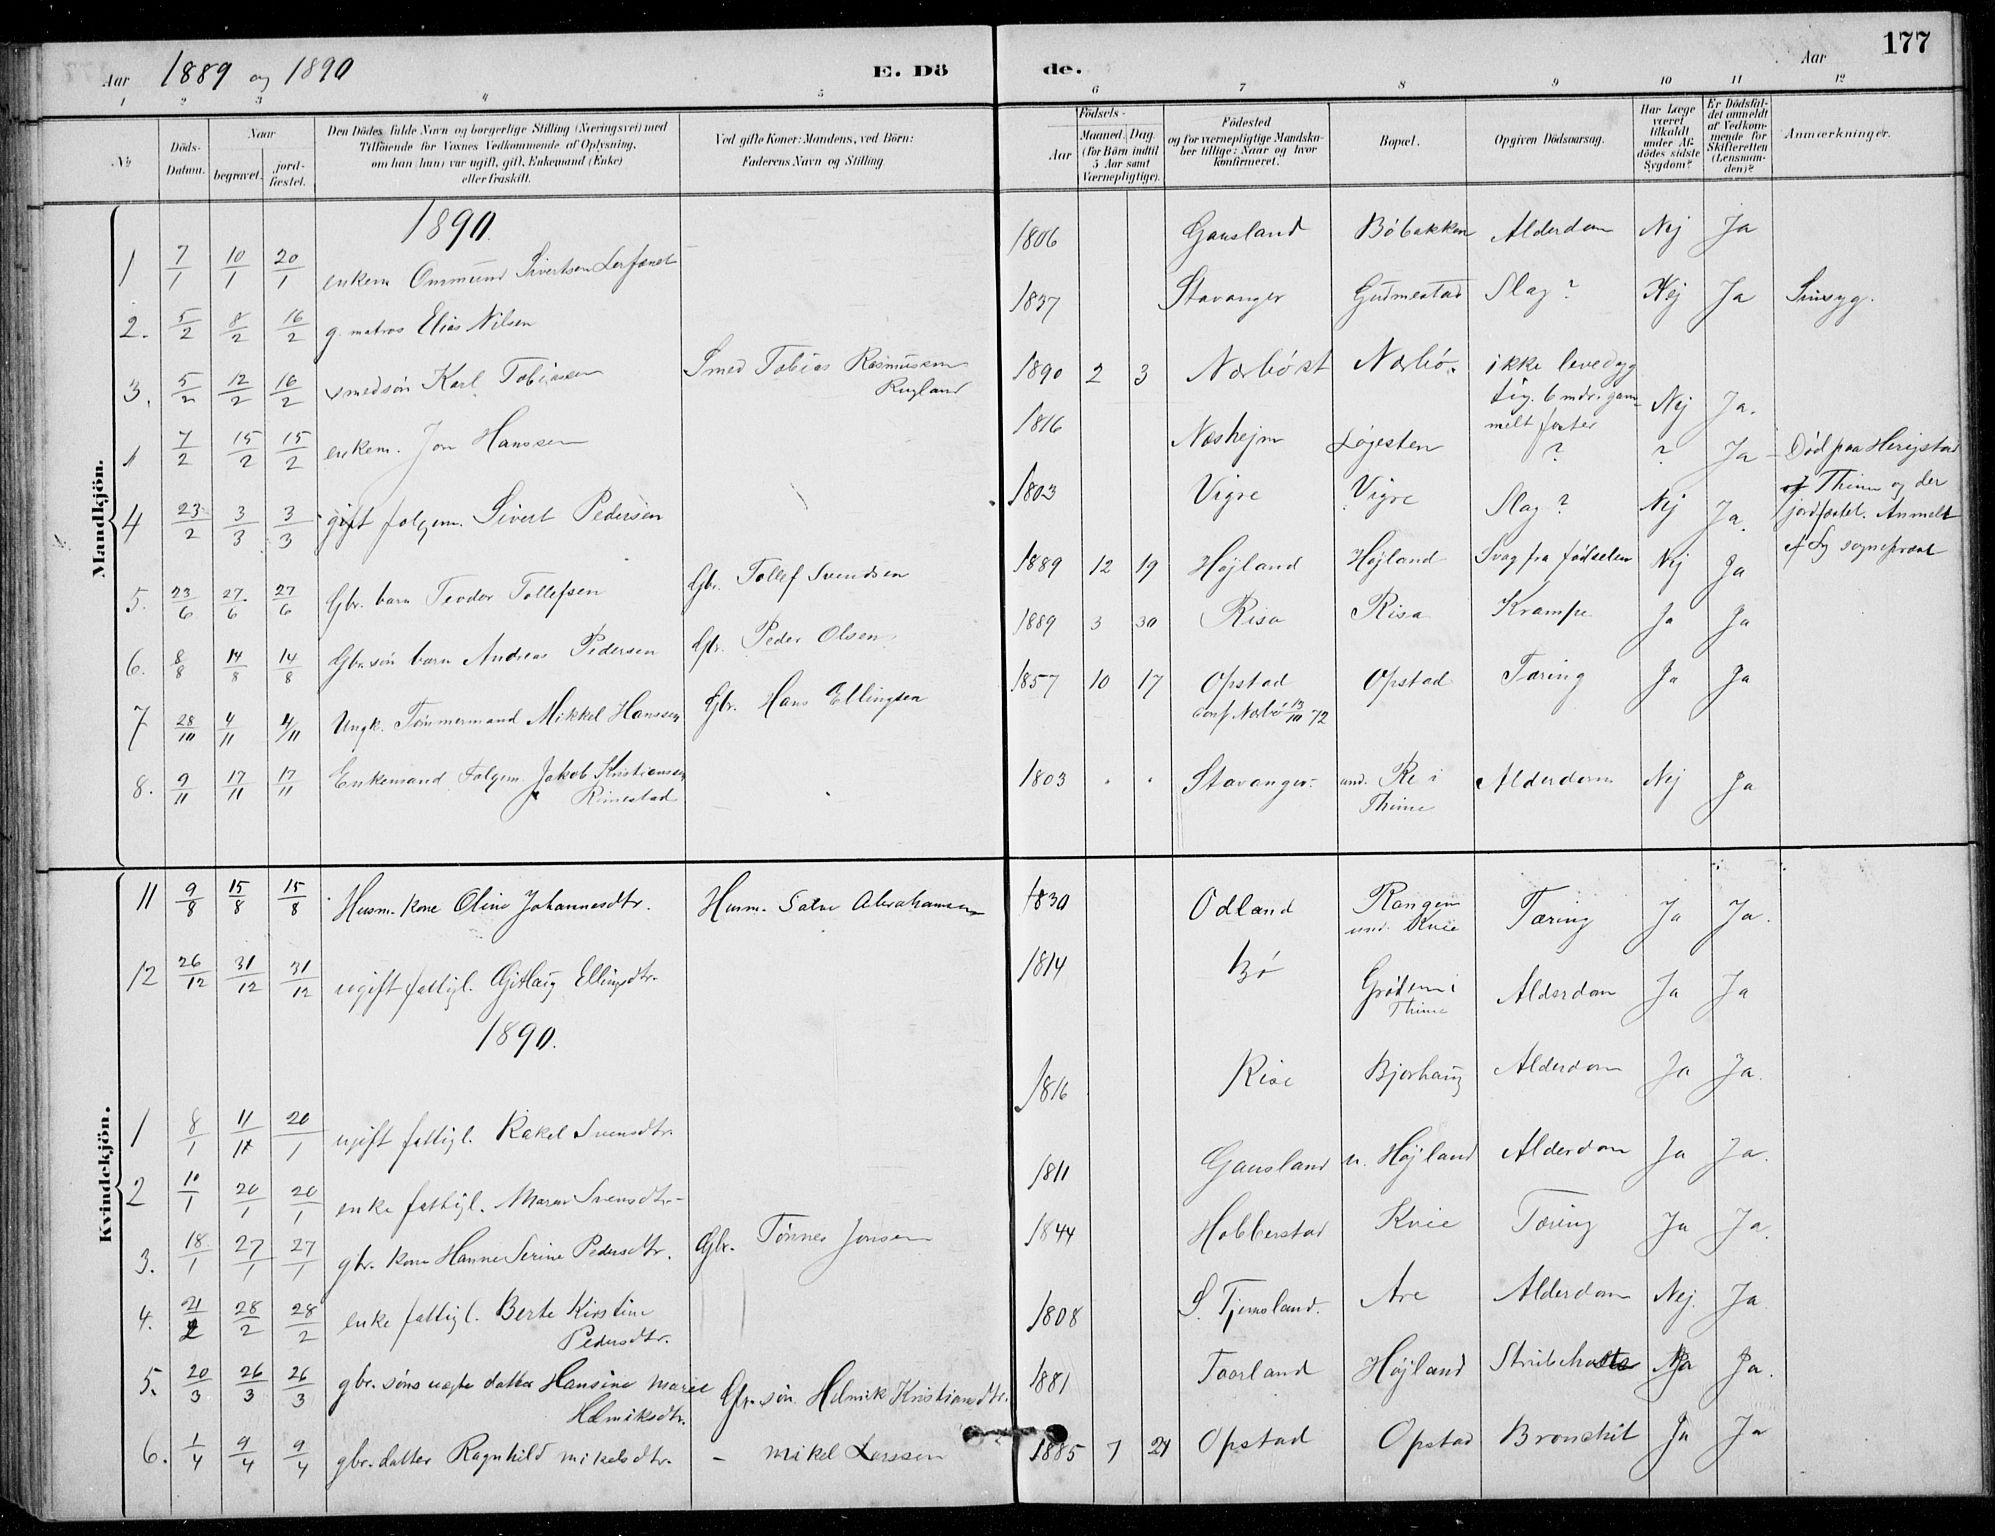 Aar 1889 og 1890 E. Dö de. Aar 177
1 2 3 4 5 6 7 8 9 10 11 12
No. Döds-Datum. Naar begravet. jord-fæstet. Den Dödes fulde Navn og borgerlige Stilling (Næringsvei) med Tilföiende for Voxnes Vedkommende af Oplysning, om han (hun) var ugift, gift, Enkemand (Enke) eller fraskilt. Ved gifte Koner: Mandens, ved Börn: Faderens Navn og Stilling. Födsels- Aar Maaned. Dag. (for Börn indtil 5 Aar samt Værnepligtige). Födested og for værnepligtige Mandska-ber tillige: Naar og hvor konfirmeret. Bopæl. Opgiven Dödsaarsag. Har Læge været tilkaldt under Af-dödes sidste Sygdom? Er Dödsfal-det anmeldt af Vedkom-mende for Skifteretten (Lensman-den)? Anmærkninger.
Mandkjön.
1890.
1 7/1 10/1 20/1 enkem Ommund Sivertsen 1806 Gausland Bøbakken Alderdom Nej Ja
2. 5/2 8/2 16/2 g. matros Elias Nilsen 1837 Stavanger Gudmestad Slag? Nej Ja Sinsyg.
3. 5/2 12/2 16/2 smedsøn Karl Tobiassen Smed Tobias Rasmussen 1890 2 3 Nærbø st Nærbø. ikke levedyg
Rugland tig. 6 mdr. gam- Nej Ja.
melt foster
7/2 15/2 15/2 enkem. Jon Hanssen 1816 Næshejm Løgesten ? ? Ja - Død paa Herigstad
4 23/2 3/3 3/3 gift folgem. Sivert Pedersen 1803 Vigre Vigre Slag? Nej Ja. Thime og der
jordfæstet. Anmelt
af sognepræst
5. 23/6 27/6 27/6 Gbr. barn Teodor Tollefsen Gbr. Tollef Svendsen 1889 12 19 Højland Højland Svag fra fødselen Nej Ja
6. 8/8 14/8 14/8 Gbr. søn barn Andreas Pedersen Gbr. Peder Olsen 1889 3 30 Risa Risa Krampe Ja Ja
7 28/10 4/11 4/11 Ungk. Tømmermand Mikkel Hanssen Gbr. Hans Ellingsen 1857 10 17 Opstad Opstad Tæring Ja Ja
conf. Nærbø 13/10 72
8. 9/11 17/11 17/11 Enkemand Folgem. Jakob Kristiansen 1803 " " Stavanger und. Re i Alderdom Nej Ja
Rimestad Thime
Kvindekjön.
11 9/8 15/8 15/8 Husm. kone Oline Johannesdtr. Husm. Salve Abrahamsen 1830 Odland und. Kvie Tæring Ja Ja.
12 26/12 31/12 31/12 ugift fattigl. Ellingsdtr. 1814 Bø Grødem i Alderdom Ja Ja
Thime
1890.
1 8/1 11/1 20/1 ugift fattigl. Rakel Svensdtr. 1816 Rise Bjorhaug Alderdom Ja Ja.
2 10/1 20/1 20/1 enke fattigl. Maren Svensdtr. 1811 Gausland u. Højland Alderdom Ja Ja.
3. 18/1 27/1 27/1 gbr. kone Hanne Serine Pedersdtr. Gbr. Tønnes Jonsen 1844 Hobberstad Kvie Tæring Ja Ja.
4. 21/2 28/2 28/2 enke fattigl. Berte Kirstine 1808 S. Tjemsland. Are Alderdom Nej. Ja
Pedersdtr.
5. 20/3 26/3 26/3 gbr. søns uægte datter Hansine Marie Gbr. søn Helmik Kristiansdtr. 1881 Taarland Højland Ja Ja.
Helmiksdtr.
6. 1/4 9/4 9/4 gbr. datter Ragnhild Mikelsdtr. - Mikel Larssen 1885 7 21 Opstad Opstad Bronchit Ja Ja